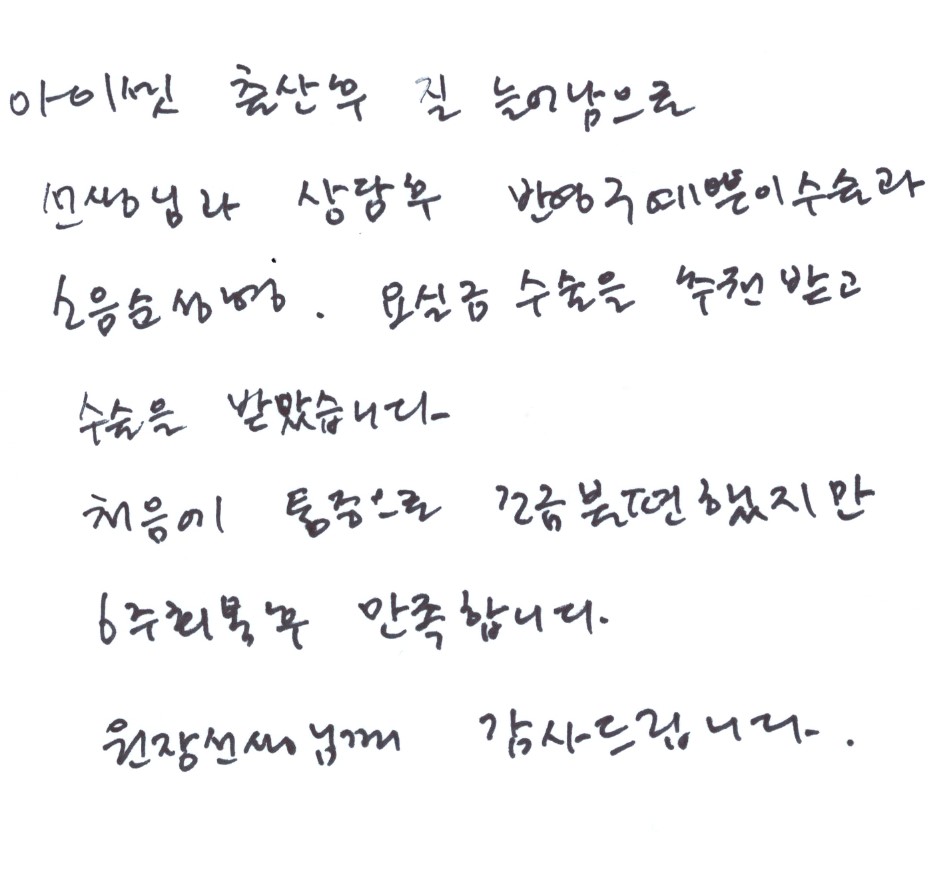 아이셋 출산후 질 늘어남으로
선생님과 상담후 반영구예쁜이수술과
소음순성형. 요실금 수술을 추천 받고
수술을 받았습니다
처음에 통증으로 조금불편했지만
6주회복후 만족합니다.
원장선생님께 감사드립니다.